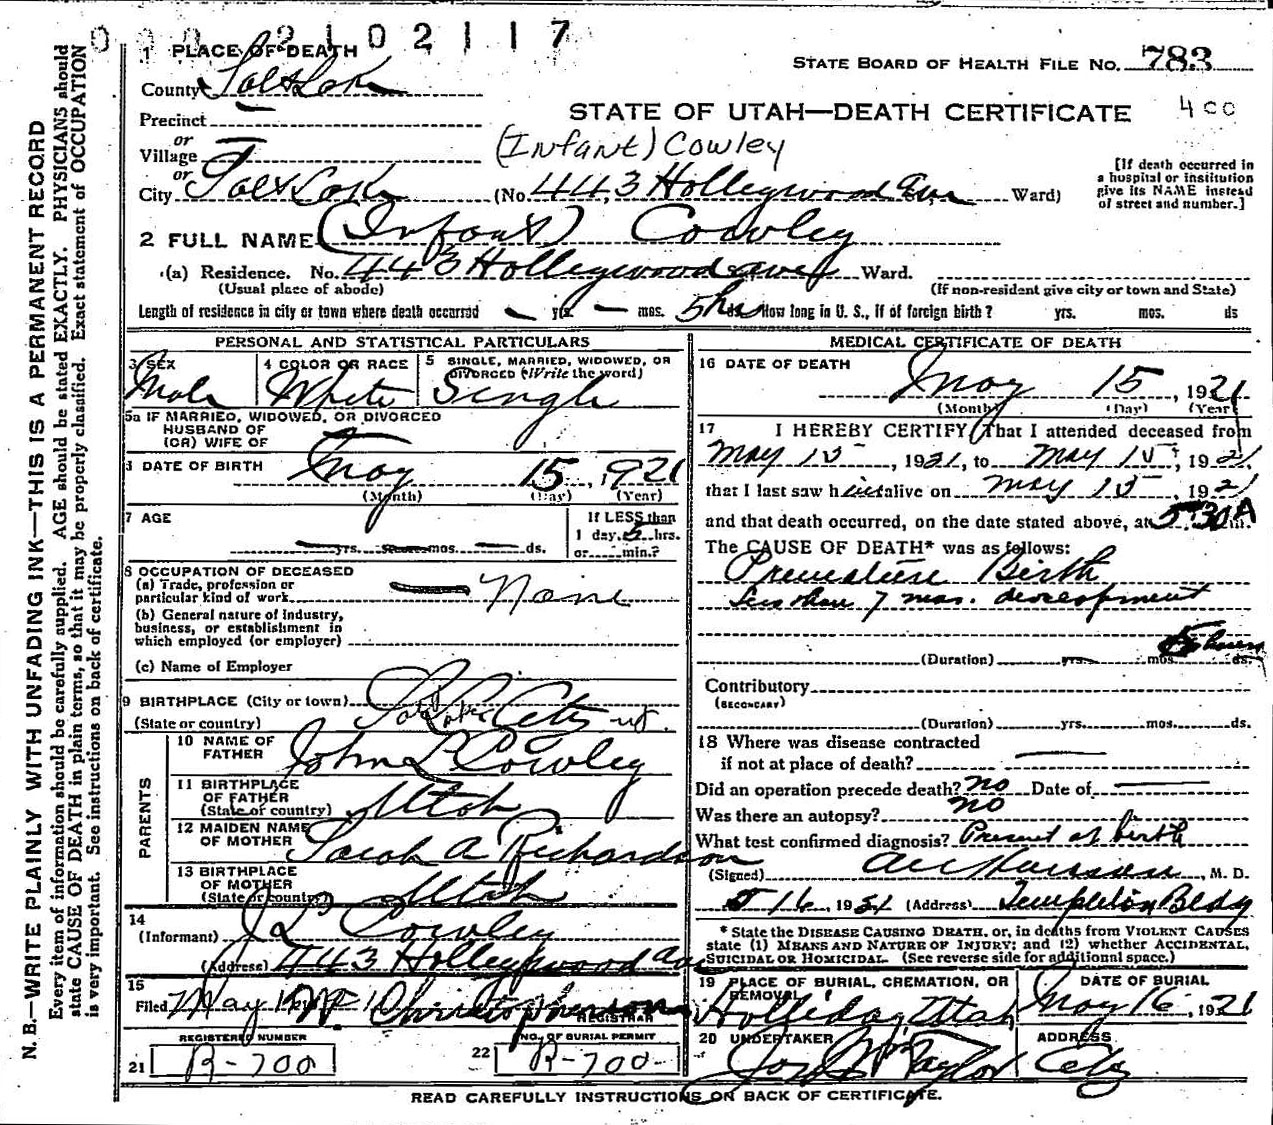 0002102117
1 PLACE OF DEATH
STATE BOARD OF HEALTH FILE NO. 783
County Salt Lake
STATE OF UTAH—DEATH CERTIFICATE 400
Precinct
or
Village
(Infant) Cowley
or
City Salt Lake (No. 443 Holleywood Ave Ward)
[If death occurred in
a hospital or institution
give its NAME instead
of street and number.]
2 FULL NAME (Infant) Cowley
(a) Residence. No. 443 Holleywood ave Ward.
(Usual place of abode) (If non-resident give city or town and State)
Length of residence in city or town where death occurred yrs. mos. 5 hrs How long in U. S., if of foreign birth? yrs. mos. ds
PERSONAL AND STATISTICAL PARTICULARS
3 SEX
Male
4 COLOR OR RACE
White
5 SINGLE, MARRIED, WIDOWED, OR
DIVORCED (Write the word)
Single
5a IF MARRIED, WIDOWED, OR DIVORCED
HUSBAND OF
(OR) WIFE OF
DATE OF BIRTH May 15, 1921
(Month) (Day) (Year)
7 AGE
yrs. mos. ds.
If LESS than
1 day, 5 hrs.
or min.?
8 OCCUPATION OF DECEASED
(a) Trade, profession or
particular kind of work None
(b) General nature of industry,
business, or establishment in
which employed (or employer)
(c) Name of Employer
9 BIRTHPLACE (City or town)
(State or country) Salt Lake City ut.
PARENTS
10 NAME OF
FATHER John L Cowley
11 BIRTHPLACE
OF FATHER
(State or country) Utah
12 MAIDEN NAME
OF MOTHER Sarah A Richardson
13 BIRTHPLACE
OF MOTHER
(State or country) Utah
14
(Informant) J L Cowley
(Address) 443 Holleywood ave
15
Filed May Christopherson
REGISTRAR
REGISTERED NUMBER
21 R-700
NO. OF BURIAL PERMIT
22 R-700
MEDICAL CERTIFICATE OF DEATH
16 DATE OF DEATH
May 15, 1921
(Month) (Day) (Year)
17 I HEREBY CERTIFY, That I attended deceased from
May 15, 1921, to May 15, 1921,
that I last saw him alive on May 15, 1921
and that death occurred, on the date stated above, at 5:30 A m.
The CAUSE OF DEATH* was as follows:
Premature Birth
Less than 7 mos. development
5 hours
(Duration) yrs. mos. ds.
Contributory
(SECONDARY)
(Duration) yrs. mos. ds.
18 Where was disease contracted
if not at place of death?
Did an operation precede death? no Date of
Was there an autopsy? no
What test confirmed diagnosis? Present at birth
(Signed), M. D.
5 16, 1921 (Address) Templeton Bldg
* State the DISEASE CAUSING DEATH, or, in deaths from VIOLENT CAUSES
state (1) MEANS AND NATURE OF INJURY; and (2) whether ACCIDENTAL,
SUICIDAL OR HOMICIDAL. (See reverse side for additional space.)
19 PLACE OF BURIAL, CREMATION, OR
REMOVAL
Holliday, Utah
DATE OF BURIAL
May 16, 1921
20 UNDERTAKER
Jos Wm Taylor
ADDRESS
City
READ CAREFULLY INSTRUCTIONS ON BACK OF CERTIFICATE.
N. B.—WRITE PLAINLY WITH UNFADING INK—THIS IS A PERMANENT RECORD
Every item of information should be carefully supplied. AGE should be stated EXACTLY. PHYSICIANS should
state CAUSE OF DEATH in plain terms, so that it may be properly classified. Exact statement of OCCUPATION
is very important. See instructions on back of certificate.